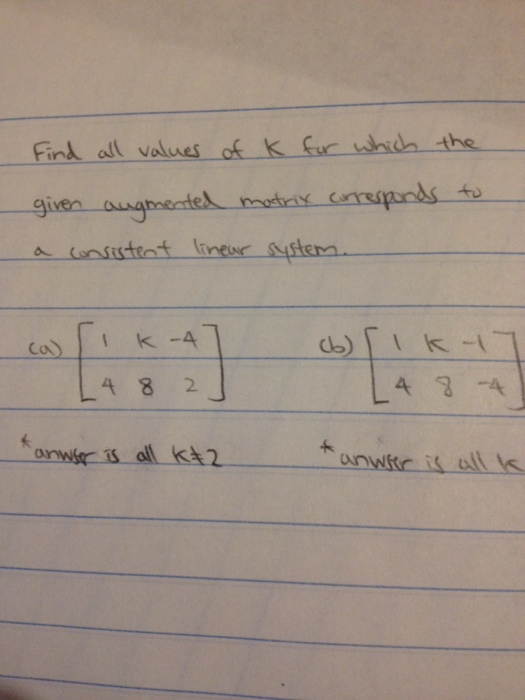 Find all values of K for which the
given augmented matrix corresponds to
a consistent linear system.
(a) [ 1 K -4 (b) [ 1 K -1
4 8 2 ] 4 8 -4 ]
*anwser is all K≠2 *anwser is all K